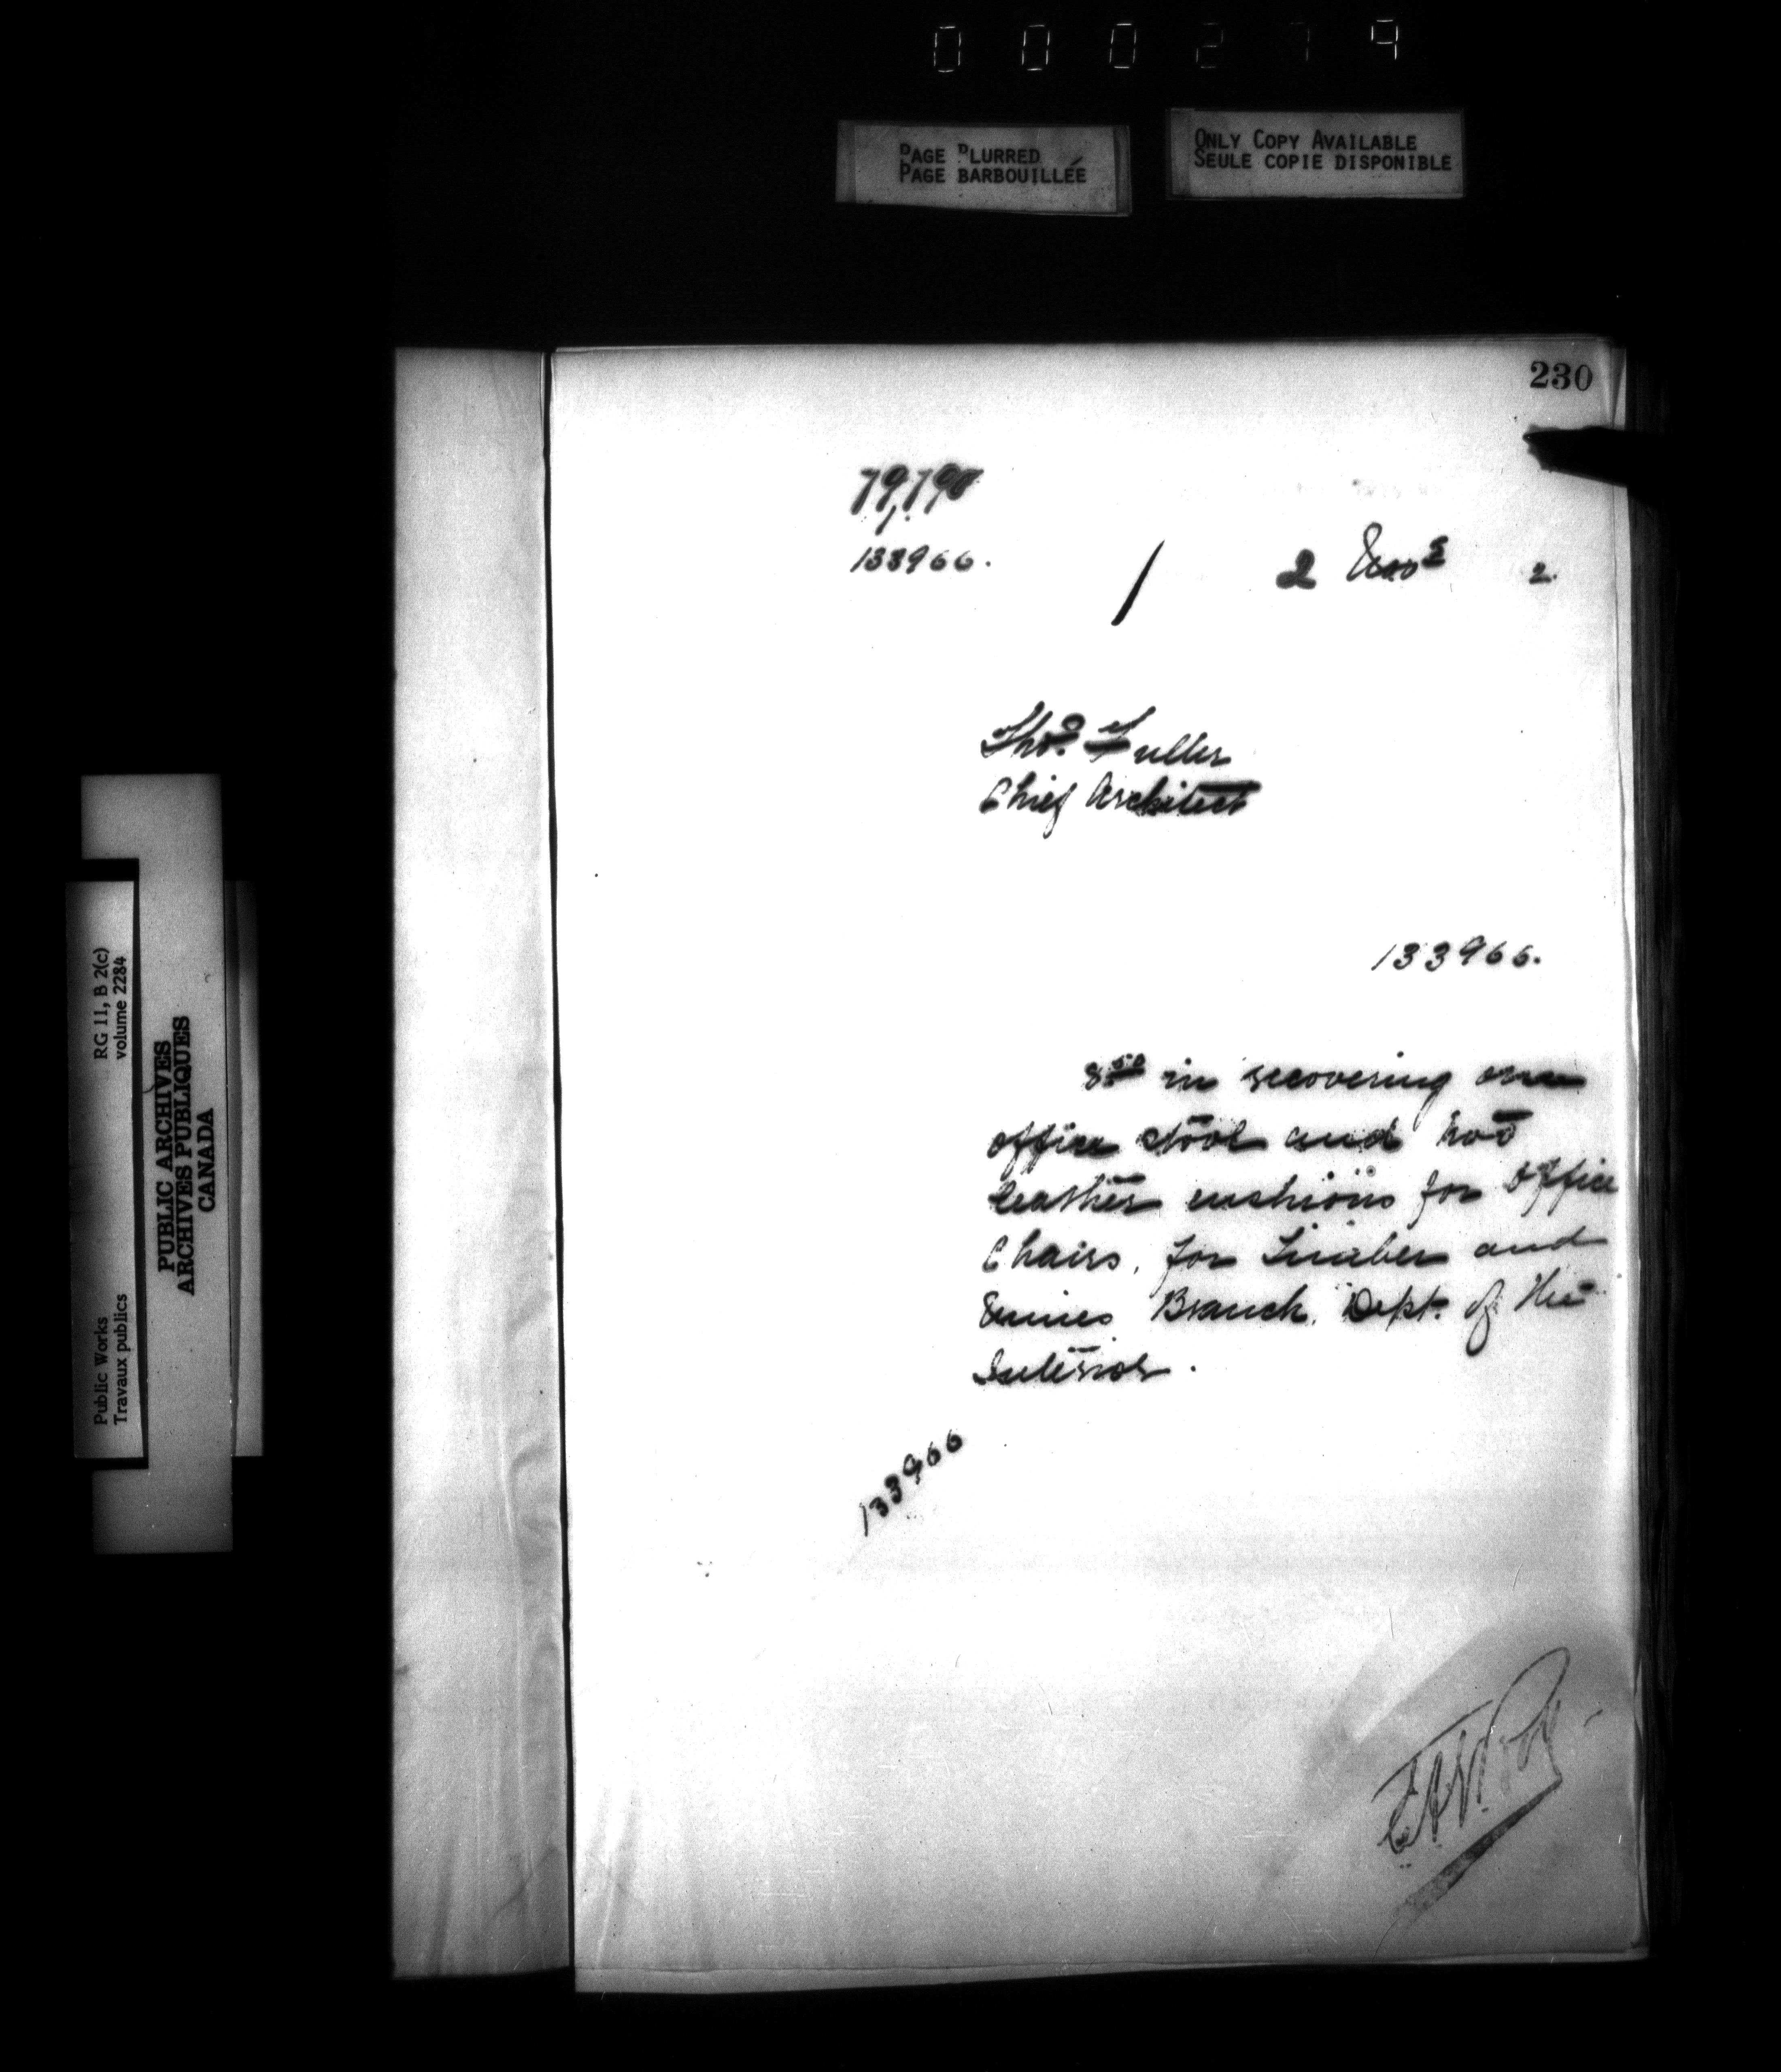 000279
PAGE BLURRED
PAGE BARBOUILLÉE
ONLY COPY AVAILABLE
SEULE COPIE DISPONIBLE
230
79,190
133966.
2 2.
Thos. Fuller
Chief Architect
133966.
8.50 in recovering one
office stool and two
leather cushions for Office
Chairs, for Timber and
Mines Branch, Dept. of the
Interior.
133966
Public Works
Travaux publics
RG 11, B 2(c)
volume 2284
PUBLIC ARCHIVES
ARCHIVES PUBLIQUES
CANADA